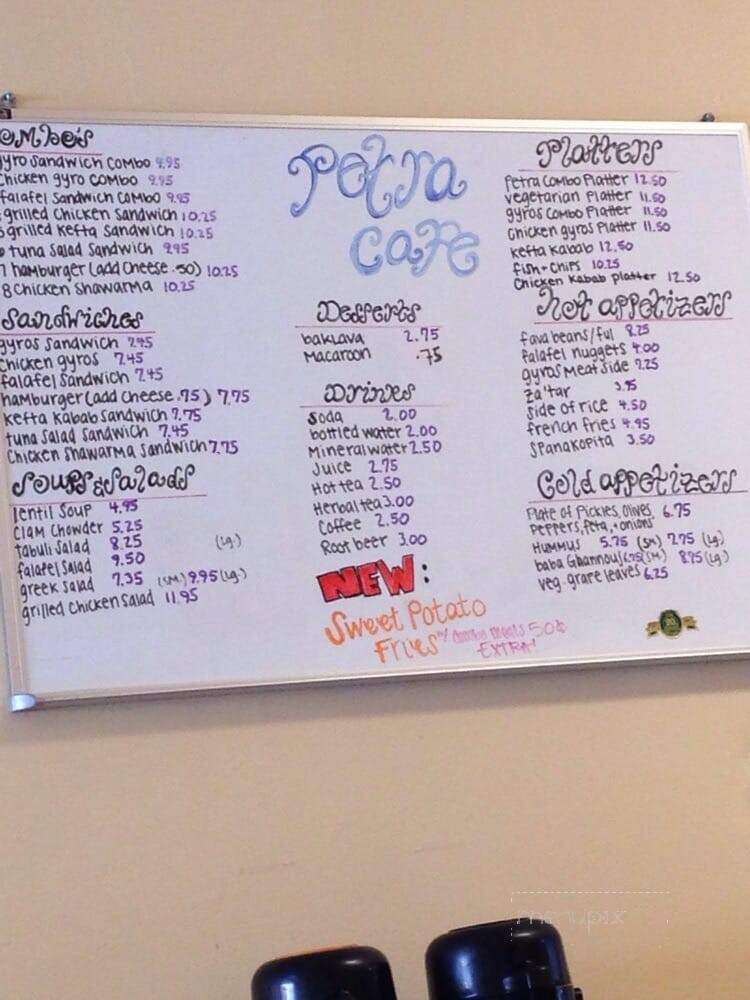 Petra
Cafe
ombo's
gyro sandwich combo 9.95
chicken gyro combo 9.95
falafel sandwich combo 9.95
grilled chicken sandwich 10.25
grilled kefta sandwich 10.25
tuna salad sandwich 9.95
7 hamburger (add cheese .50) 10.25
8 chicken shawarma 10.25
Sandwiches
gyros sandwich 7.45
chicken gyros 7.45
falafel sandwich 7.45
hamburger (add cheese .75) 7.75
kefta kabab sandwich 7.75
tuna salad sandwich 7.45
chicken shawarma sandwich 7.75
Soups & Salads
lentil soup 4.95
clam chowder 5.25
tabuli salad 8.25 (lg.)
falafel salad 9.50
greek salad 7.35 (sm.) 9.95 (lg.)
grilled chicken salad 11.95
Desserts
baklava 2.75
macaroon .75
Drinks
soda 2.00
bottled water 2.00
Mineral water 2.50
Juice 2.75
Hot tea 2.50
Herbal tea 3.00
Coffee 2.50
Root beer 3.00
NEW:
Sweet Potato
Fries w/ combo meals 50¢
EXTRA!
Platters
petra combo platter 12.50
vegetarian platter 11.50
gyros combo platter 11.50
chicken gyros platter 11.50
kefta kabab 12.50
fish + chips 10.25
chicken kabab platter 12.50
hot appetizers
fava beans/ful 8.25
falafel nuggets 4.00
gyros meat side 7.25
za'tar 3.95
side of rice 4.50
french fries 4.95
spanakopita 3.50
Cold appetizers
Plate of pickles, olives, 6.75
peppers, feta, + onions
Hummus 5.75 (sm.) 7.75 (lg.)
baba ghannouj 6.75 (sm.) 8.75 (lg.)
veg. grape leaves 6.25
menupix